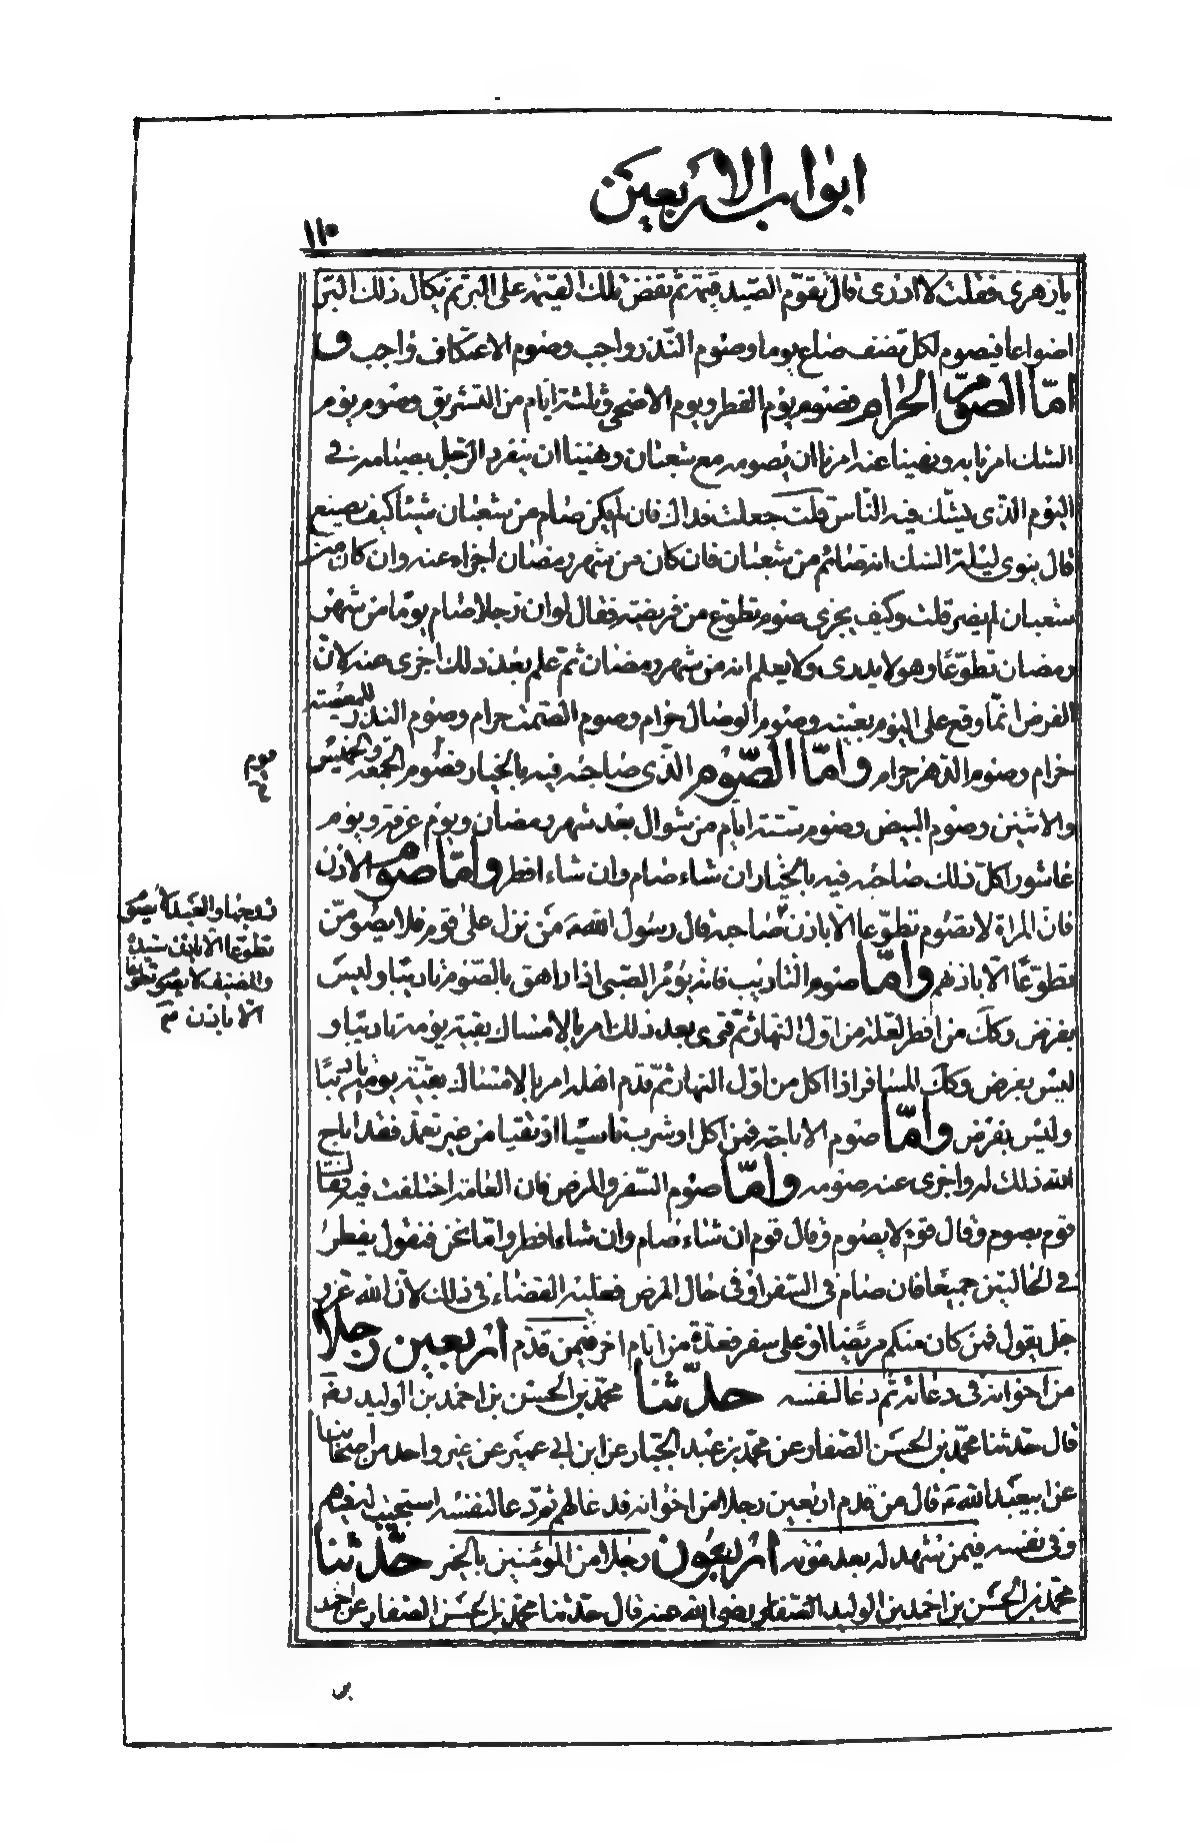 ابواب الاربعين
١١٥
يا زهرى فقلت لا ادرى قال يقوّم الصّيد قيمة ثم تفض تلك القيمة على البرّ ثم يكال ذلك البرّ
اصواعا فيصوم لكل نصف صاع يوما وصوم النّذر واجب وصوم الاعتكاف واجب و
امّا الصّوم الحرام فصوم يوم الفطر ويوم الاضحى وثلثة ايّام من التشريق وصوم يوم
الشك امرنا به ونهينا عنه امرنا ان نصومه مع شعبان ونهينا ان ينفرد الرّجل بصيامه في
اليوم الذى يشّك فيه النّاس قلت جعلت فداك فان لم يكن صام من شعبان شيئا كيف يصنع
قال ينوى ليلة الشك انه صائم من شعبان فان كان من شهر رمضان اجزاء عنه وان كان من
شعبان لم يضر قلت وكيف يجزى صوم تطوّع من فريضة فقال لو ان رجلا صام يوما من شهر
رمضان تطوّعًا وهو لا يدرى ولا يعلم انه من شهر رمضان ثمّ علم بعد ذلك اجزى عنه لانّ
الفرض انّما وقع على اليوم بعينه وصوم الوصال حرام وصوم الصّمت حرام وصوم النذر للمعصية
حرام وصوم الدّهر حرام وامّا الصّوم الذى صاحبه فيه بالخيار فصوم الجمعة والخميس
والاثنين وصوم البيض وصوم ستّة ايّام من شوال بعد شهر رمضان ويوم عرفة ويوم
عاشورا كلّ ذلك صاحبه فيه بالخيار ان شاء صام وان شاء افطر وامّا صوم الاذن
فانّ المراة لا تصوم تطوّعا الّا باذن صاحبه قال رسول اللهَ مَن نزل على قوم فلا يصومنّ
تطوّعًا الّا باذنهم وامّا صوم التّاديب فانّه يؤمر الصّبى اذا راهق بالصّوم تاديبًا وليس
بفرض وكك من افطر لعلّة من اوّل النهار ثمّ قوى بعد ذلك امر بالامساك بقيّة يومه تاديبًا و
ليس بفرض وكك المسافر اذا اكل من اوّل النهار ثمّ قدم اهله امر بالامساك بقيّة يومه تاديبًا
وليس بفرض وامّا صوم الاباحة فمن اكل او شرب ناسيًا او تقيا من غير تعمّد فقد اباح
الله ذلك له واجزى عنه صومه وامّا صوم السّفر والمرض فان العامّة اختلفت فيه فقال
قوم يصوم وقال قوم لا يصوم وقال قوم ان شاء صام وان شاء افطر وامّا نحن فنقول يفطر
في الحالتين جميعًا فان صام فى السّفر او فى حال المرض فعليه القضاء فى ذلك لانّ الله عزّ و
جل يقول فمن كان منكم مريضًا او على سفر فعدّة من ايّام اخر فيمن قدّم اربعين رجلا
من اخوانه فى دعائه ثم دعا لنفسه حدّثنا محمّد بن الحسن بن احمد بن الوليد
قال حدثنا محمّد بن الحسَن الصّفار عن محمّد بن عبد الجبّار عن ابن ابي عمير عن غير واحد من اصحابنا
عن ابيعبد اللهَ قال من قدم اربعين رجلا من اخوانه فدعا لهم ثم دعا لنفسه استجيب له فيهم
وفى نفسه فيمن شهد له بعد موته اربعون رجلا من المؤمنين بالخير حدّثنا
محمّد بن الحسن بن احمد بن الوليد الصّفار رضى الله عنه قال حدّثنا محمّد بن الحسَن الصّفار عن احمد
يوم
زوجها والعبد لا يصوم
تطوّعا الّا باذن سيّده
والضيف لا يصوم تطوّعا
الّا باذن
بن